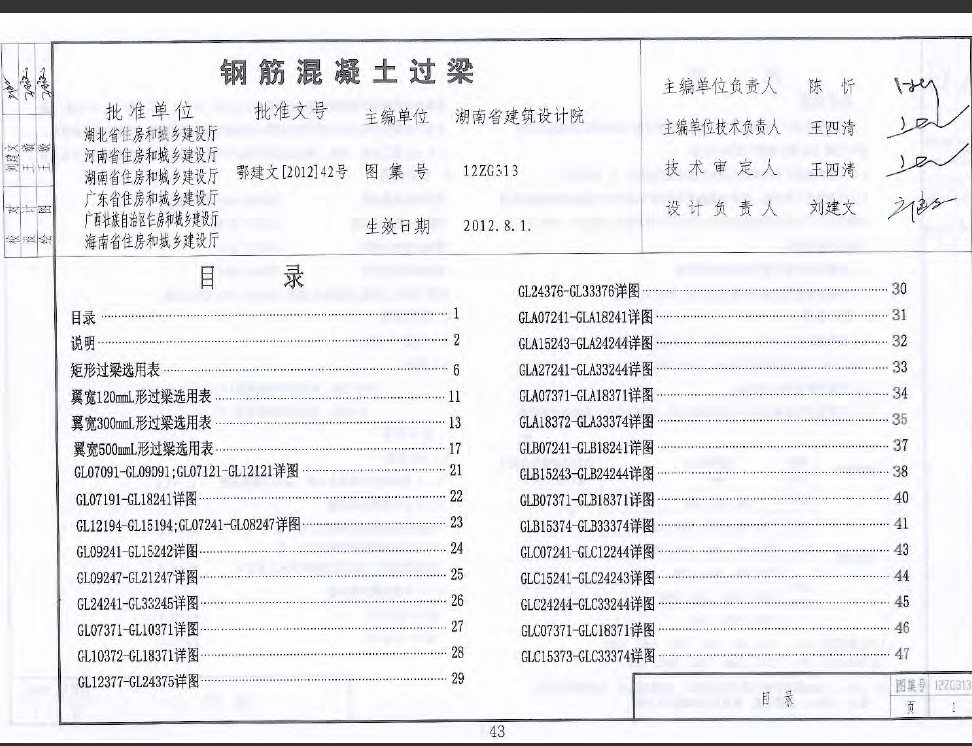 钢筋混凝土过梁
批准单位
湖北省住房和城乡建设厅
河南省住房和城乡建设厅
湖南省住房和城乡建设厅
广东省住房和城乡建设厅
广西壮族自治区住房和城乡建设厅
海南省住房和城乡建设厅
批准文号
鄂建文[2012]42号
主编单位 湖南省建筑设计院
图集号 12ZG313
生效日期 2012.8.1.
主编单位负责人 陈忻
主编单位技术负责人 王四清
技术审定人 王四清
设计负责人 刘建文
目 录
目录 1
说明 2
矩形过梁选用表 6
翼宽120mmL形过梁选用表 11
翼宽300mmL形过梁选用表 13
翼宽500mmL形过梁选用表 17
GL07091-GL09091;GL07121-GL12121详图 21
GL07191-GL18241详图 22
GL12194-GL15194;GL07241-GL08247详图 23
GL09241-GL15242详图 24
GL09247-GL21247详图 25
GL24241-GL33245详图 26
GL07371-GL10371详图 27
GL10372-GL18371详图 28
GL12377-GL24375详图 29
GL24376-GL33376详图 30
GLA07241-GLA18241详图 31
GLA15243-GLA24244详图 32
GLA27241-GLA33244详图 33
GLA07371-GLA18371详图 34
GLA18372-GLA33374详图 35
GLB07241-GLB18241详图 37
GLB15243-GLB24244详图 38
GLB07371-GLB18371详图 40
GLB15374-GLB33374详图 41
GLC07241-GLC12244详图 43
GLC15241-GLC24243详图 44
GLC24244-GLC33244详图 45
GLC07371-GLC18371详图 46
GLC15373-GLC33374详图 47
目 录
图集号 12ZG313
页 1
43